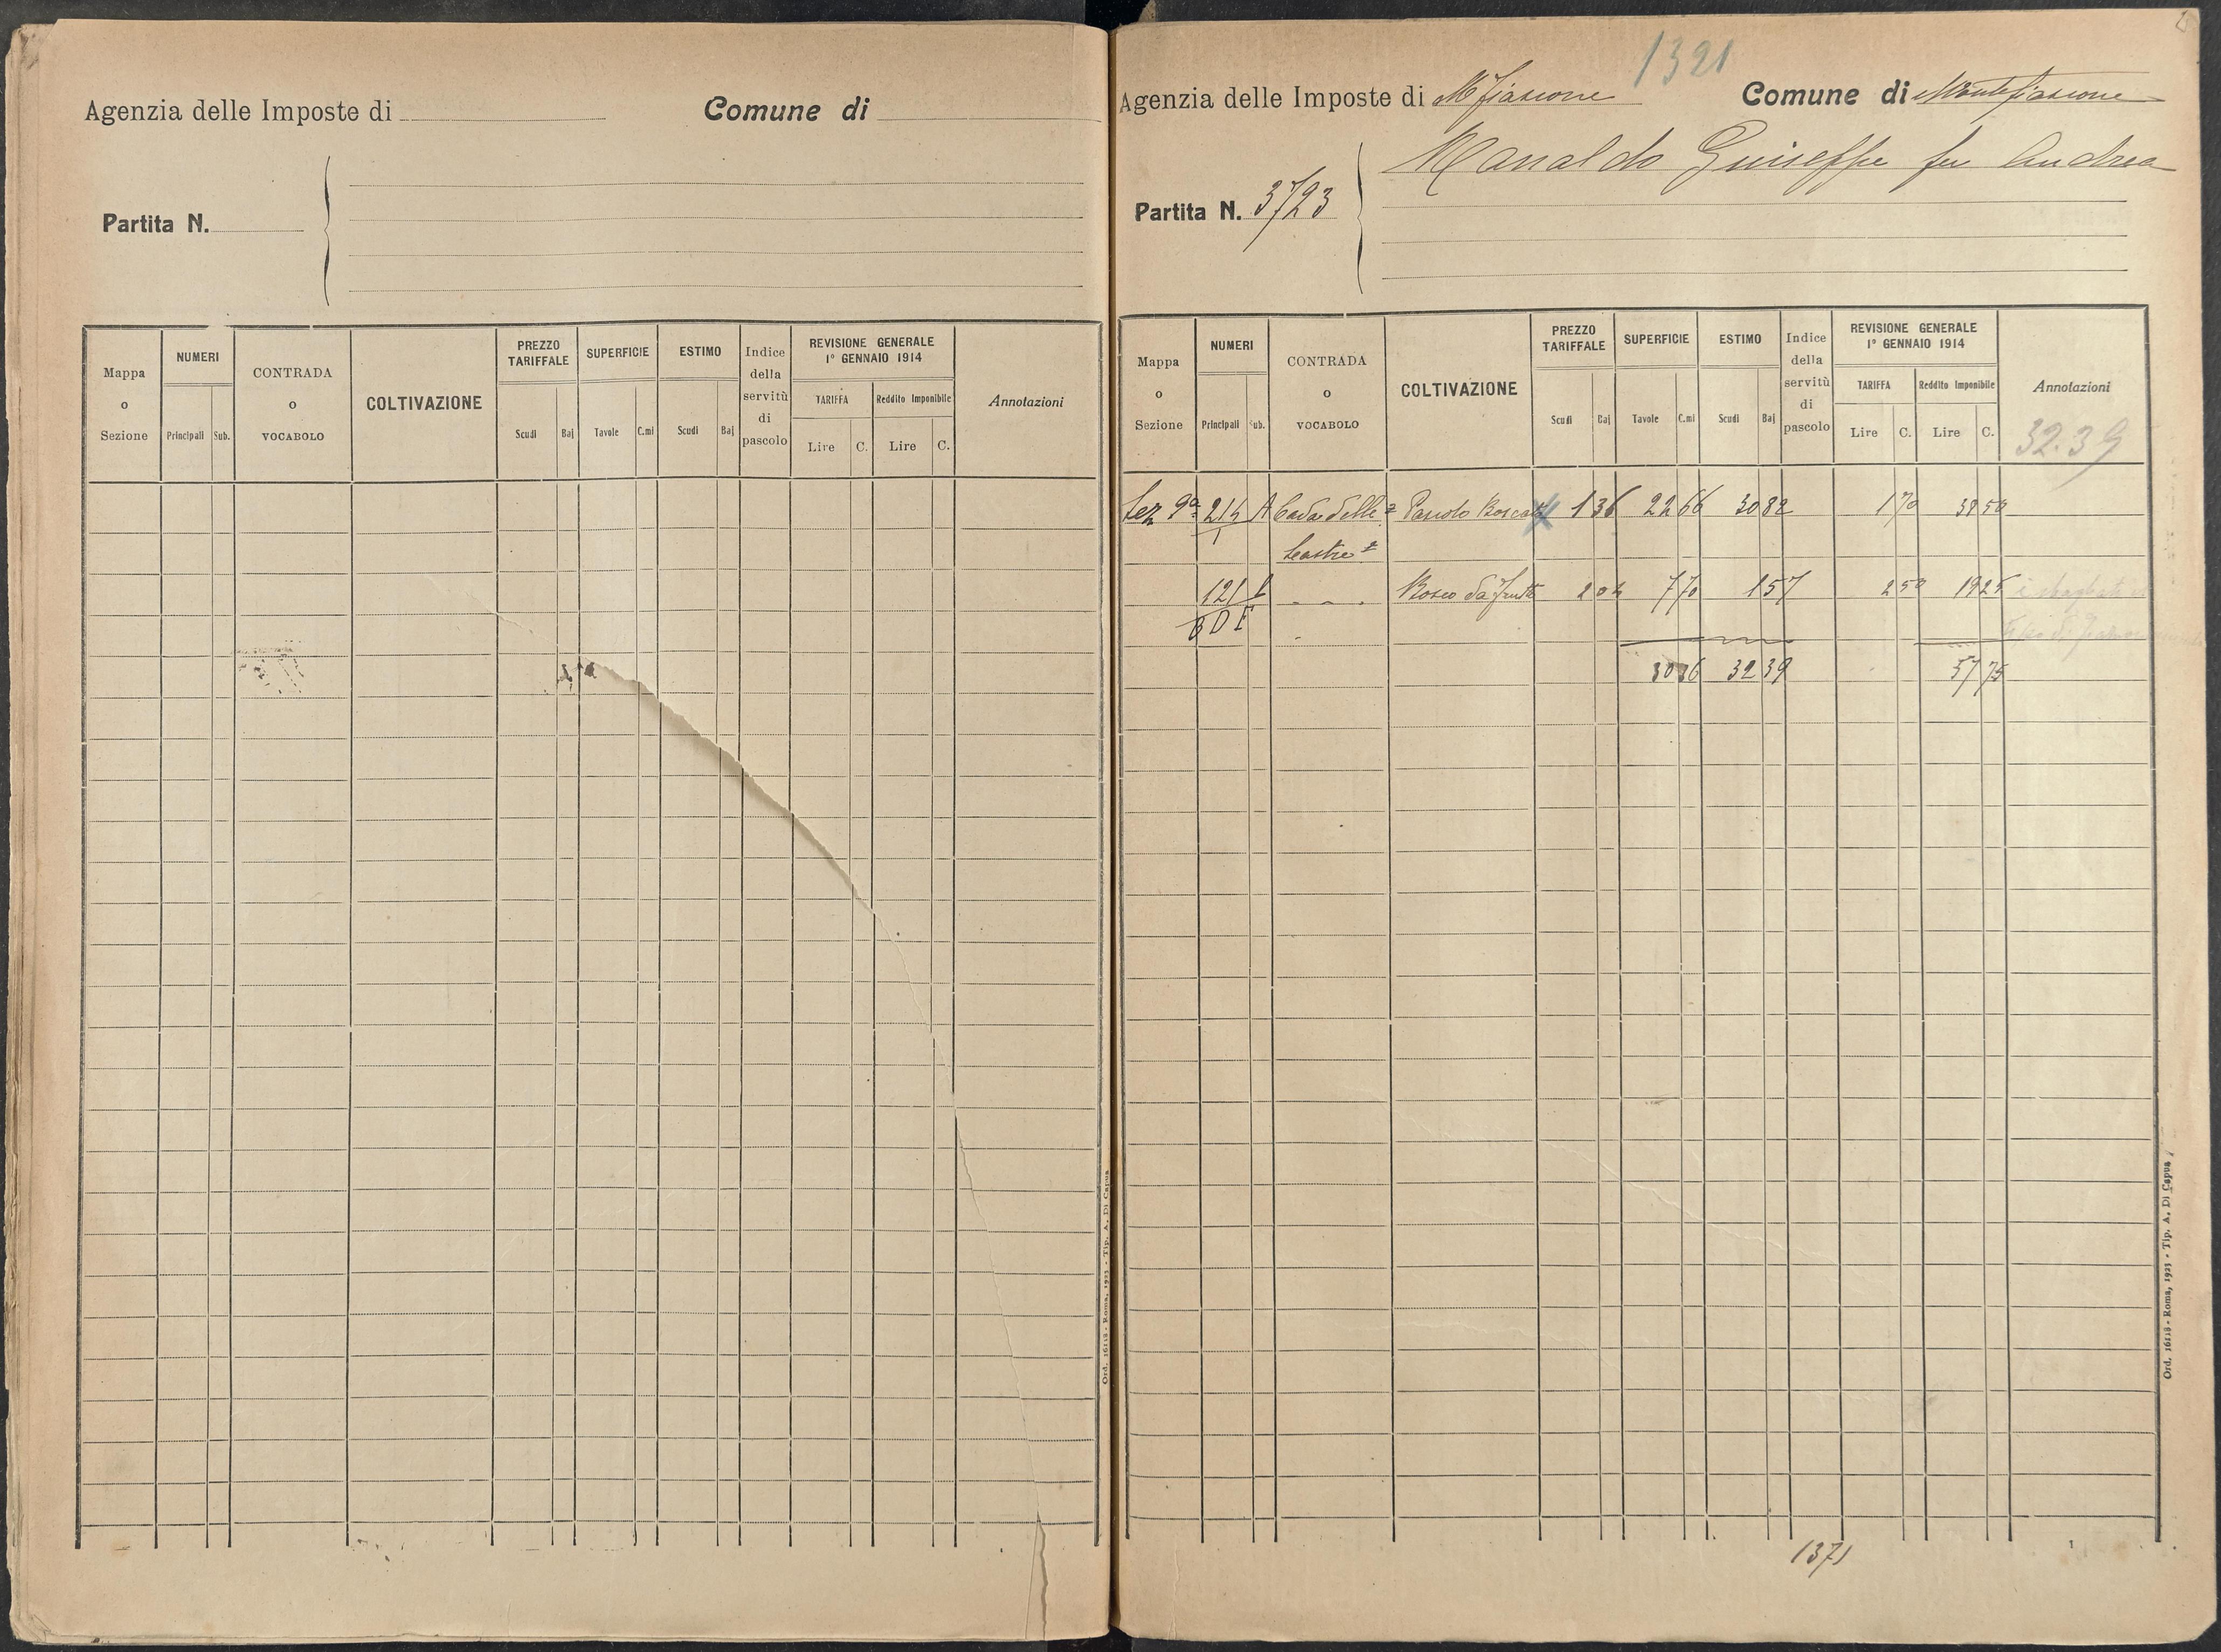 Agenzia delle Imposte di
Comune di
Partita N.
Mappa o Sezione
NUMERI
Principali
Sub.
CONTRADA o VOCABOLO
COLTIVAZIONE
PREZZO TARIFFALE
Scudi
Baj
SUPERFICIE
Tavole
C.mi
ESTIMO
Scudi
Baj
Indice della servitù di pascolo
REVISIONE GENERALE
1° GENNAIO 1914
TARIFFA
Reddito Imponibile
Lire
C.
Lire
C.
Annotazioni
Ord. 16118 - Roma, 1923 - Tip. A. Di Capua
1321
Agenzia delle Imposte di Mfiascone
Comune di Montefiascone
Partita N. 3723
Manaldo Giuseppe fu Andrea
Mappa o Sezione
NUMERI
Principali
Sub.
CONTRADA o VOCABOLO
COLTIVAZIONE
PREZZO TARIFFALE
Scudi
Baj
SUPERFICIE
Tavole
C.mi
ESTIMO
Scudi
Baj
Indice della servitù di pascolo
REVISIONE GENERALE
1° GENNAIO 1914
TARIFFA
Reddito Imponibile
Lire
C.
Lire
C.
Annotazioni
32.39
Sez 9a 214 A delle Pascolo Boscato 1 36 22 66 30 82 1 70 38 50
1
121 Bosco da frutto 2 04 7 70 1 57 2 50 19 25
B D E
30 36 32 39 57 75
Ord. 16118 - Roma, 1923 - Tip. A. Di Capua
1371